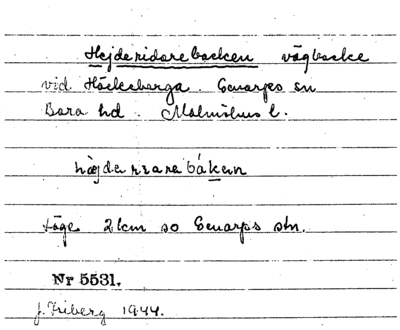 Hejderidarebacken vägbacke
vid Häckeberga. Genarps sn
Bara hd. Malmöhus l.
häjderɪɪarebákɐn
Läge 2 km so Genarps stn.
Nr 5531.
J. Friberg 1944.